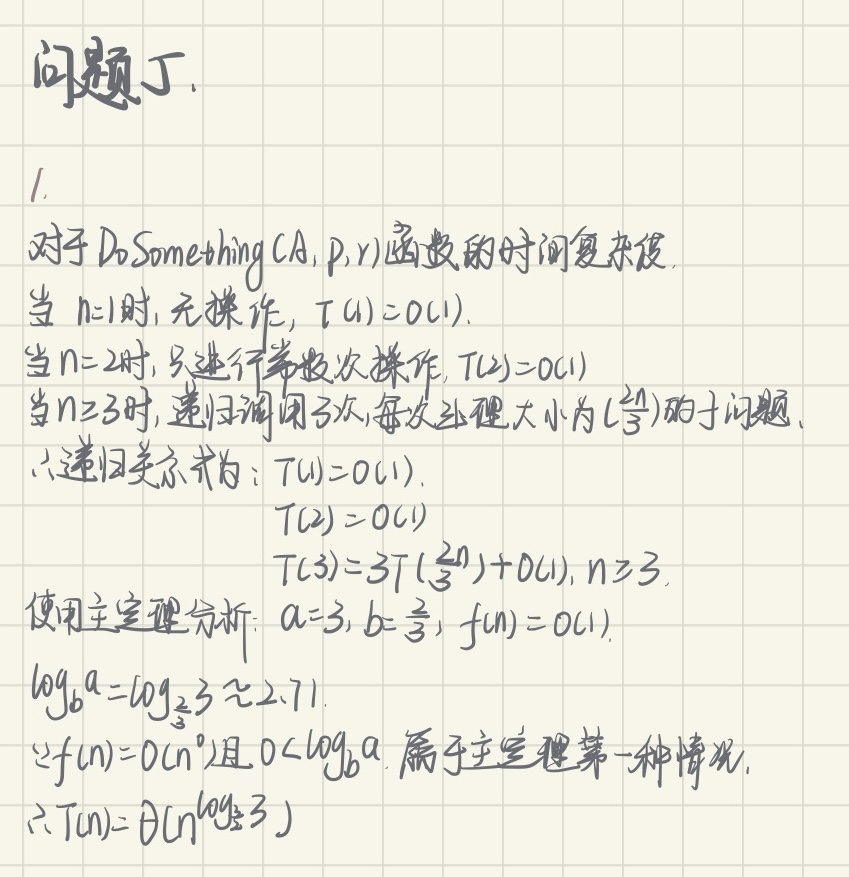 问题丁.
1.
对于DoSomething(A,p,r)函数的时间复杂度.
当 n=1时,无操作, T(1)=O(1).
当n=2时,只进行常数次操作,T(2)=O(1)
当n≥3时,递归调用3次,每次处理大小为(2n/3)的子问题.
∴递归关系式为: T(1)=O(1).
T(2)=O(1)
T(3)=3T(2n/3)+O(1), n≥3.
使用主定理分析: a=3, b=2/3, f(n)=O(1).
log_b a=log_{2/3} 3≈2.71.
∵f(n)=O(n^0)且0<log_b a. 属于主定理第一种情况.
∴T(n)=θ(n^{log_{2/3} 3})